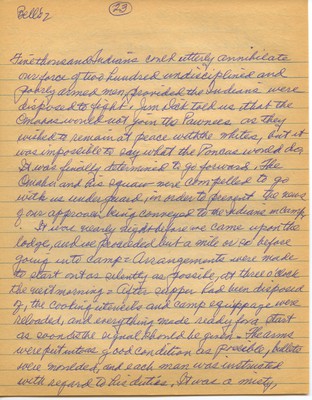 Bell 62
23
Five thousand Indians could utterly annihilate
our force of two hundred undisciplined and
poorly armed men, provided the Indians were
disposed to fight. Jim Dick told us that the
Omahas would not join the Pawnees as they
wished to remain at peace with the whites, but it
was impossible to say what the Poncas would do.
It was finally determined to go forward. The
Omaha and his squaw were compelled to go
with us under guard, in order to prevent the news
of our approach being conveyed to the Indians in camp.
It was nearly night before we came upon the
lodge, and we proceeded but a mile or so before
going into camp. Arrangements were made
to start out as silently as possible, at three o'clock
the next morning. After supper had been disposed
of, the cooking utensils and camp equippage were
reloaded, and everything made ready for a start
as soon as the signal should be given. The arms
were put into as good condition as possible, bullets
were moulded, and each man was instructed
with regard to his duties. It was a misty,